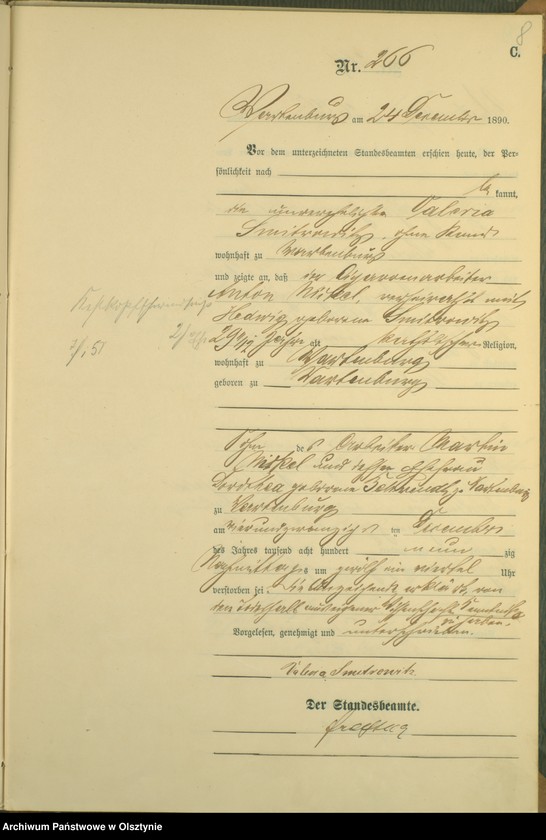 8
C.
Nr. 266
Wartenburg am 24 Dezember 1890.
Vor dem unterzeichneten Standesbeamten erschien heute, der Per-
sönlichkeit nach
be kannt,
die unverehelichte Valeria
Smitrowitz, ohne Stand
wohnhaft zu Wartenburg
und zeigte an, daß der Cigarrenarbeiter
Anton Nickel, verheirathet mit
Hedwig geborene Smitrowitz
29 Jahre alt katholischer Religion,
wohnhaft zu Wartenburg
geboren zu Wartenburg
Sohn des Arbeiter Martin
Nickel und dessen Ehefrau
Dorothea geborene zu Wartenburg
zu Wartenburg
am vierundzwanzigsten Dezember
des Jahres tausend acht hundert neunzig
Nachmittags um zwölf ein viertel Uhr
verstorben sei. Die Anzeigende erklärt, von
dem Sterbefall aus eigener Wissenschaft Kenntniß
zu haben.
Vorgelesen, genehmigt und unterschrieben.
Valeria Smitrowitz
Der Standesbeamte.
Freytag
2/1 51
Archiwum Państwowe w Olsztynie